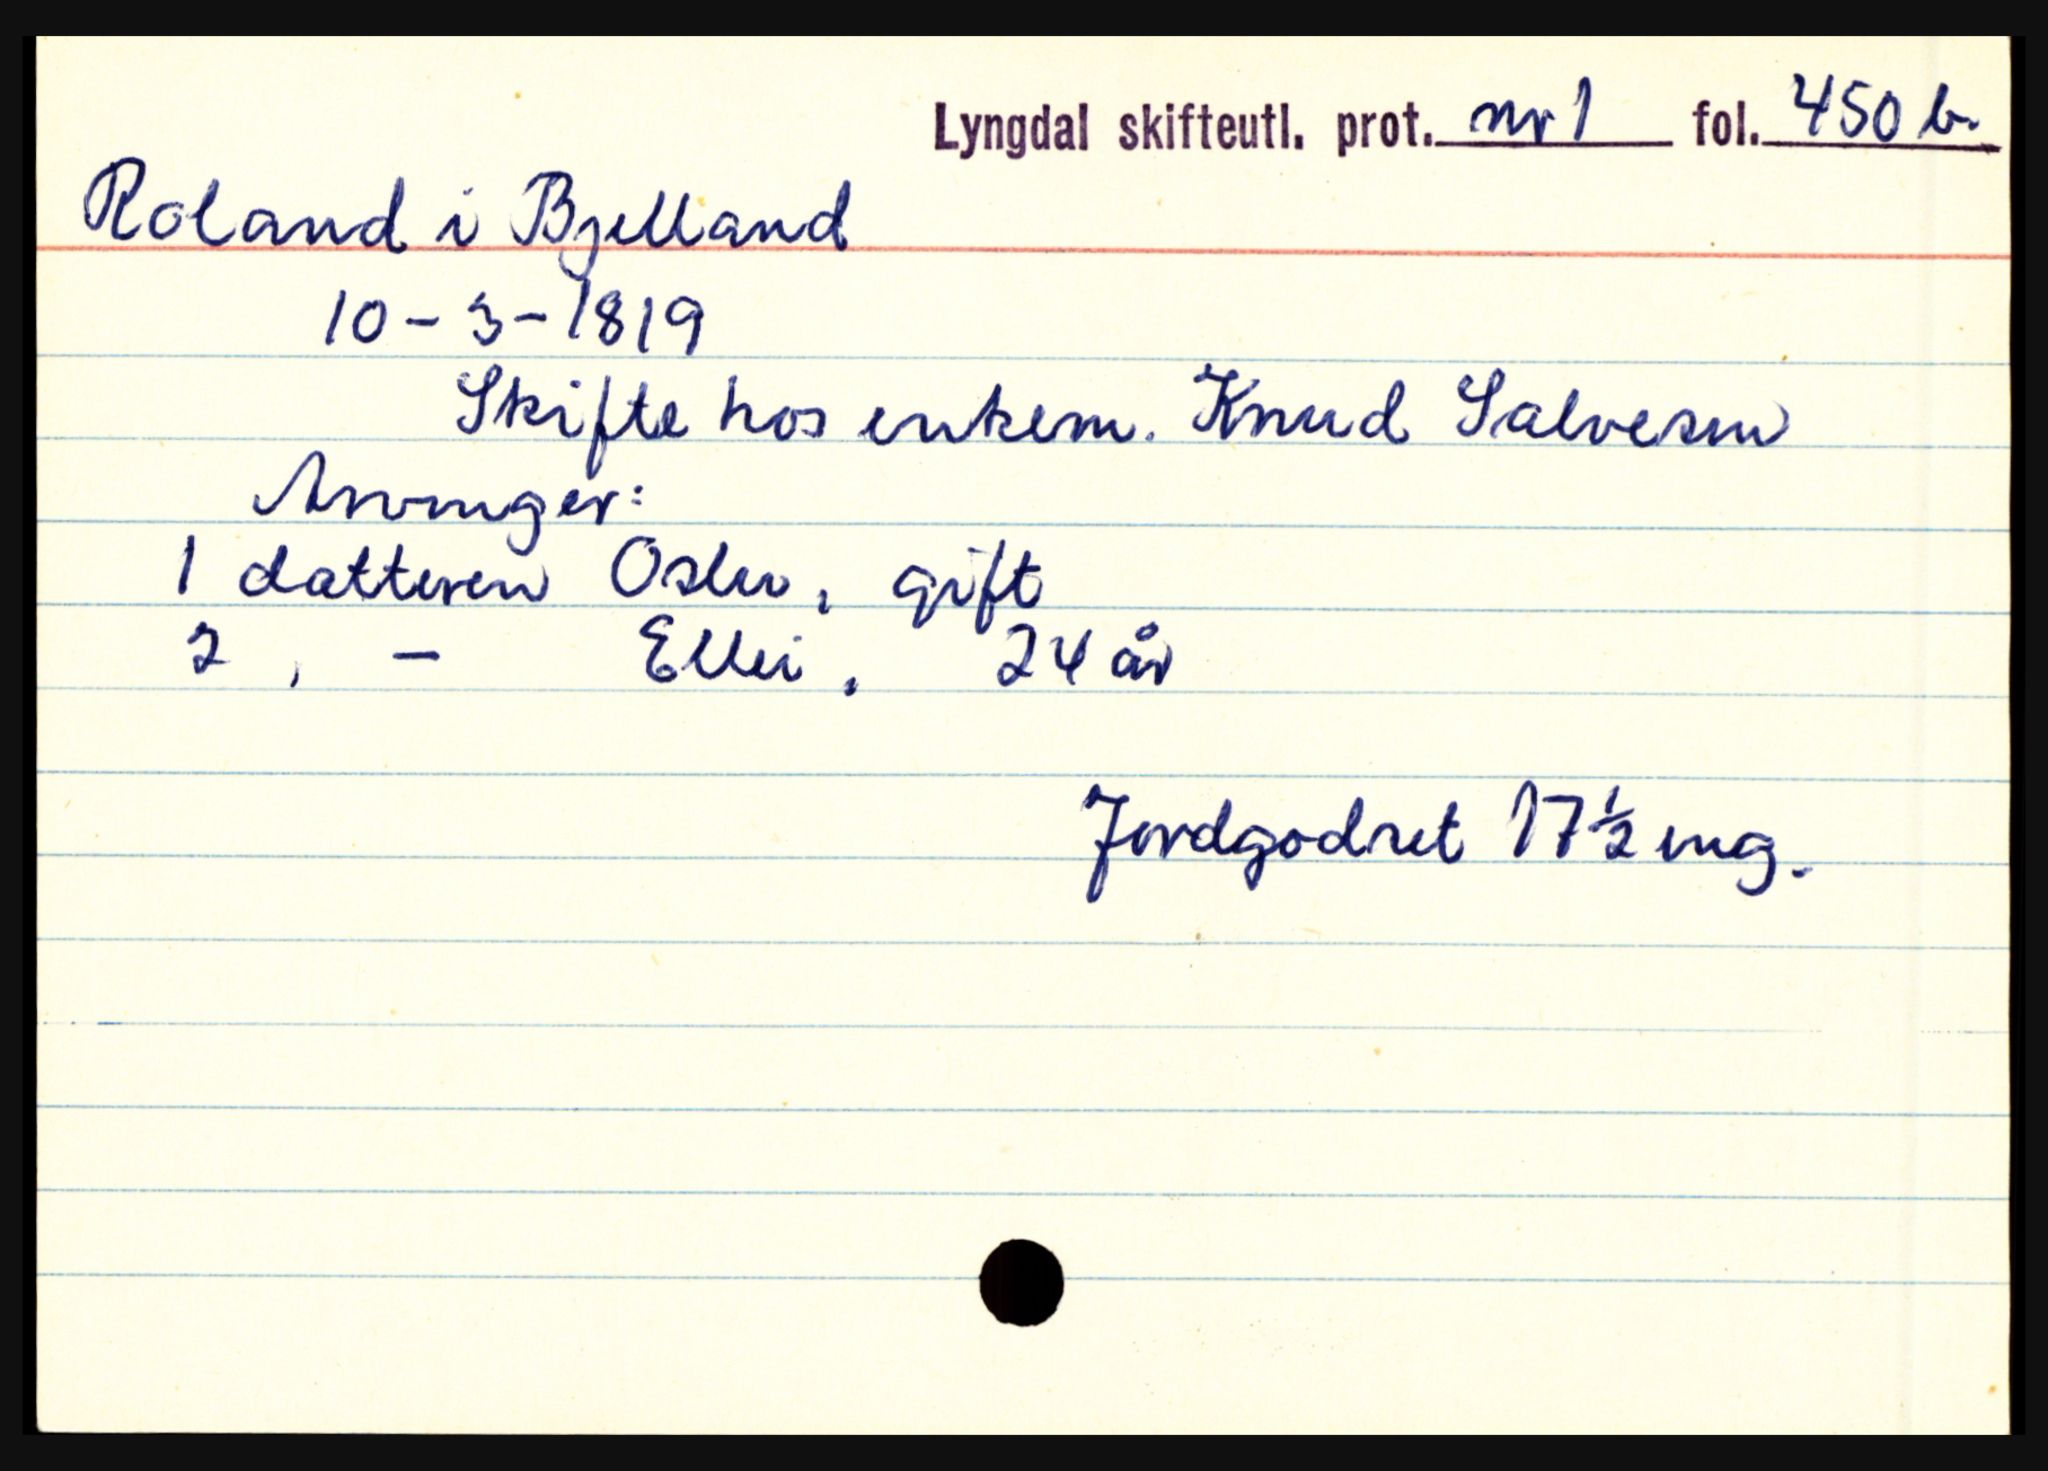 Lyngdal skifteutl. prot. nr 1 fol. 450 b.
Roland i Bjelland
10-3-1819
Skifte hos enkem. Knud Salvesen
Arvinger:
1 datteren Oslu, gift
2, - Elli, 24 år
Jordgodset 17½ mg.